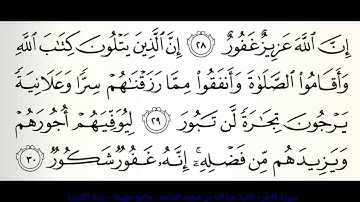 إِنَّ ٱللَّهَ عَزِيزٌ غَفُورٌ ٢٨ إِنَّ ٱلَّذِينَ يَتْلُونَ كِتَٰبَ ٱللَّهِ
وَأَقَامُوا۟ ٱلصَّلَوٰةَ وَأَنفَقُوا۟ مِمَّا رَزَقْنَٰهُمْ سِرًّا وَعَلَانِيَةً
يَرْجُونَ تِجَٰرَةً لَّن تَبُورَ ٢٩ لِيُوَفِّيَهُمْ أُجُورَهُمْ
وَيَزِيدَهُم مِّن فَضْلِهِۦٓ ۚ إِنَّهُۥ غَفُورٌ شَكُورٌ ٣٠